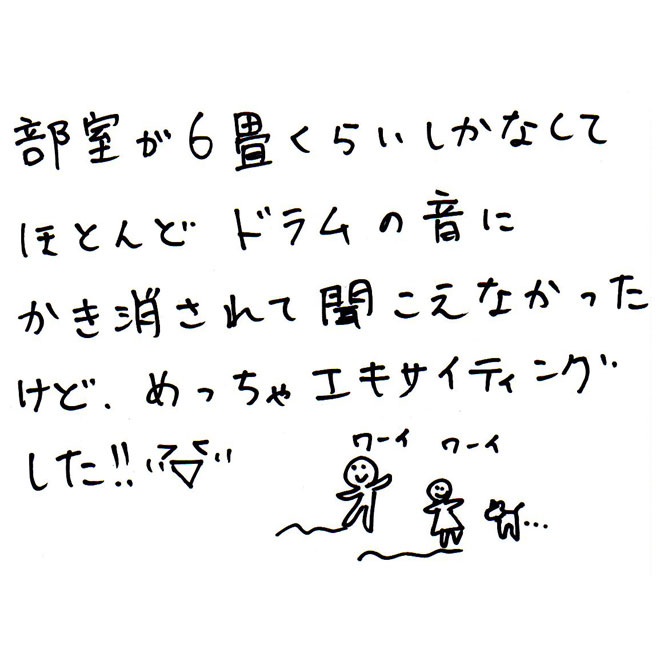 部室が6畳くらいしかなくて
ほとんどドラムの音に
かき消されて聞こえなかった
けど、めっちゃエキサイティング
した!!
ワーイ ワーイ
...